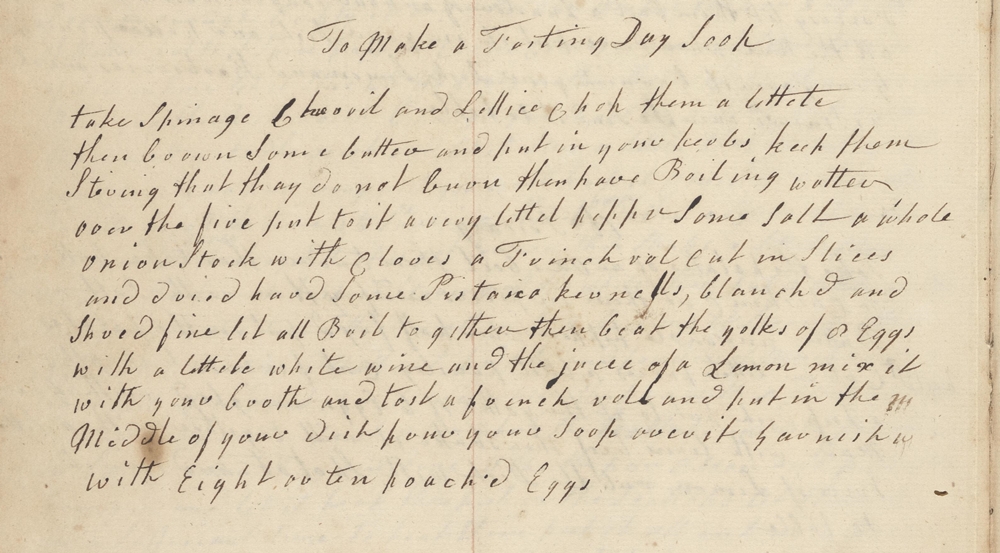 To Make a Fasting Day Soop
take Spinage Chervil and Lettice Chop them a lettele
then brown Some butter and put in your herbs keep them
Stiring that thay do not burn then have Boiling watter
over the fire put to it a very littel pepper Some Salt a whole
onion Stock with Cloves a French rol Cut in Slices
and dried hard Some Pistaxo kernells, blanch'd and
Shred fine let all Boil to gether then beat the yolks of 8 Eggs
with a lettele white wine and the juice of a Lemon mix it
with your broth and tost a french roll and put in the
Middle of your dish pour your Soop over it garnish
with Eight or ten poach'd Eggs